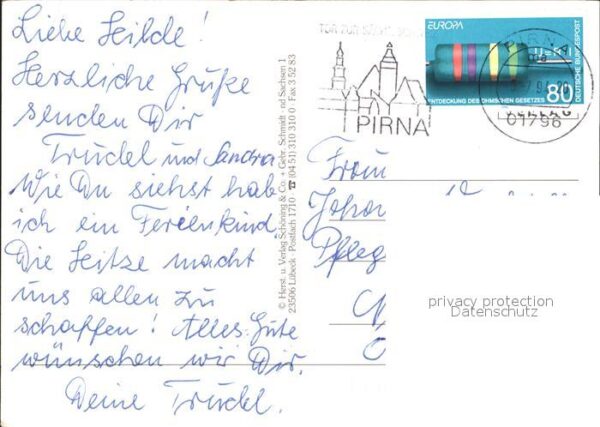 Liebe Hilde!
Herzliche Grüße
senden Dir
Trudel und Sandra
Wie Du siehst hab
ich ein Ferienkind
Die Hitze macht
uns allen zu
schaffen! Alles Gute
wünschen wir Dir.
Deine Trudel.
© Herst. u. Verlag Schöning & Co. + Gebr. Schmidt
23506 Lübeck · Postfach 1710 ☎ (04 51) 310 310 0 / Fax 3 52 83
TOR ZUR
PIRNA
EUROPA
ENTDECKUNG DES OHMSCHEN GESETZES
80
DEUTSCHE BUNDESPOST
01796
Frau
Pfleg
privacy protection
Datenschutz